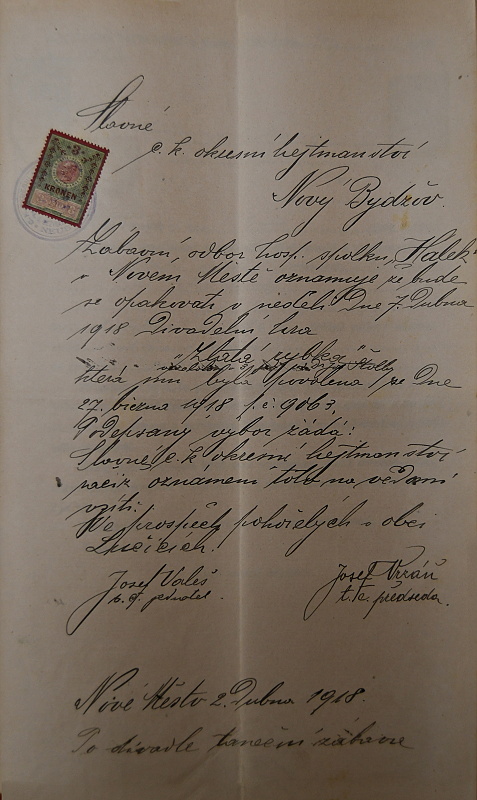 Slavné
c. k. okresní hejtmanství
Nový Bydžov.
3
KRONEN
Zábavní odbor hosp. spolku „Hálek"
v Novém Městě oznamuje že bude
se opakovati v neděli Dne 7. Dubna
1918 Divadelní hra
„Zlatá rybka"
která mu byla povolena ze Dne
27. března 1918 č. 9063,
Podepsaný výbor žádá:
Slavné c. k. okresní hejtmanství
račiž oznámení toto na vědomí
vzíti:
Ve prospěch pohořelých v obci
Josef Valeš
Josef
t. č. předseda.
Nové Město 2. Dubna 1918.
Po divadle taneční zábava